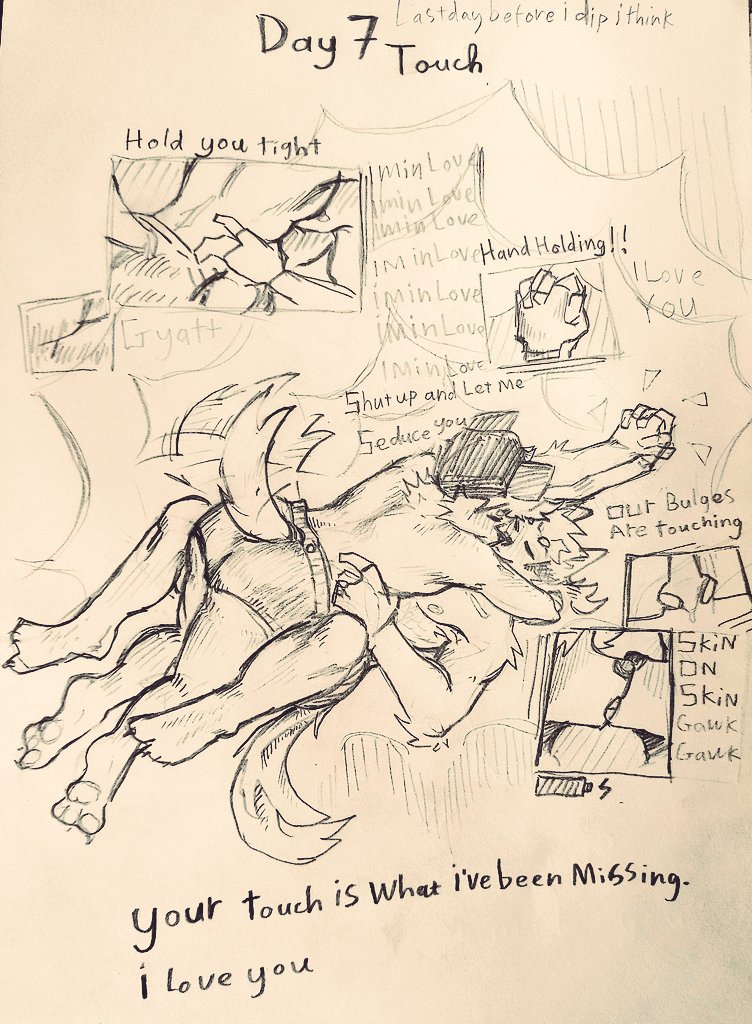 Lastday before i dip i think
Day 7
Touch
Hold you tight
I'm in Love
I'm in Love
I'm in Love
I'm in Love
I'm in Love
I'm in Love
I'm in Love
Hand Holding!!
I Love
You
Gyatt
Shut up and Let Me
Seduce you
Our Bulges
Are touching
Skin
On
Skin
Gawk
Gawk
your touch is What i've been Missing.
i love you